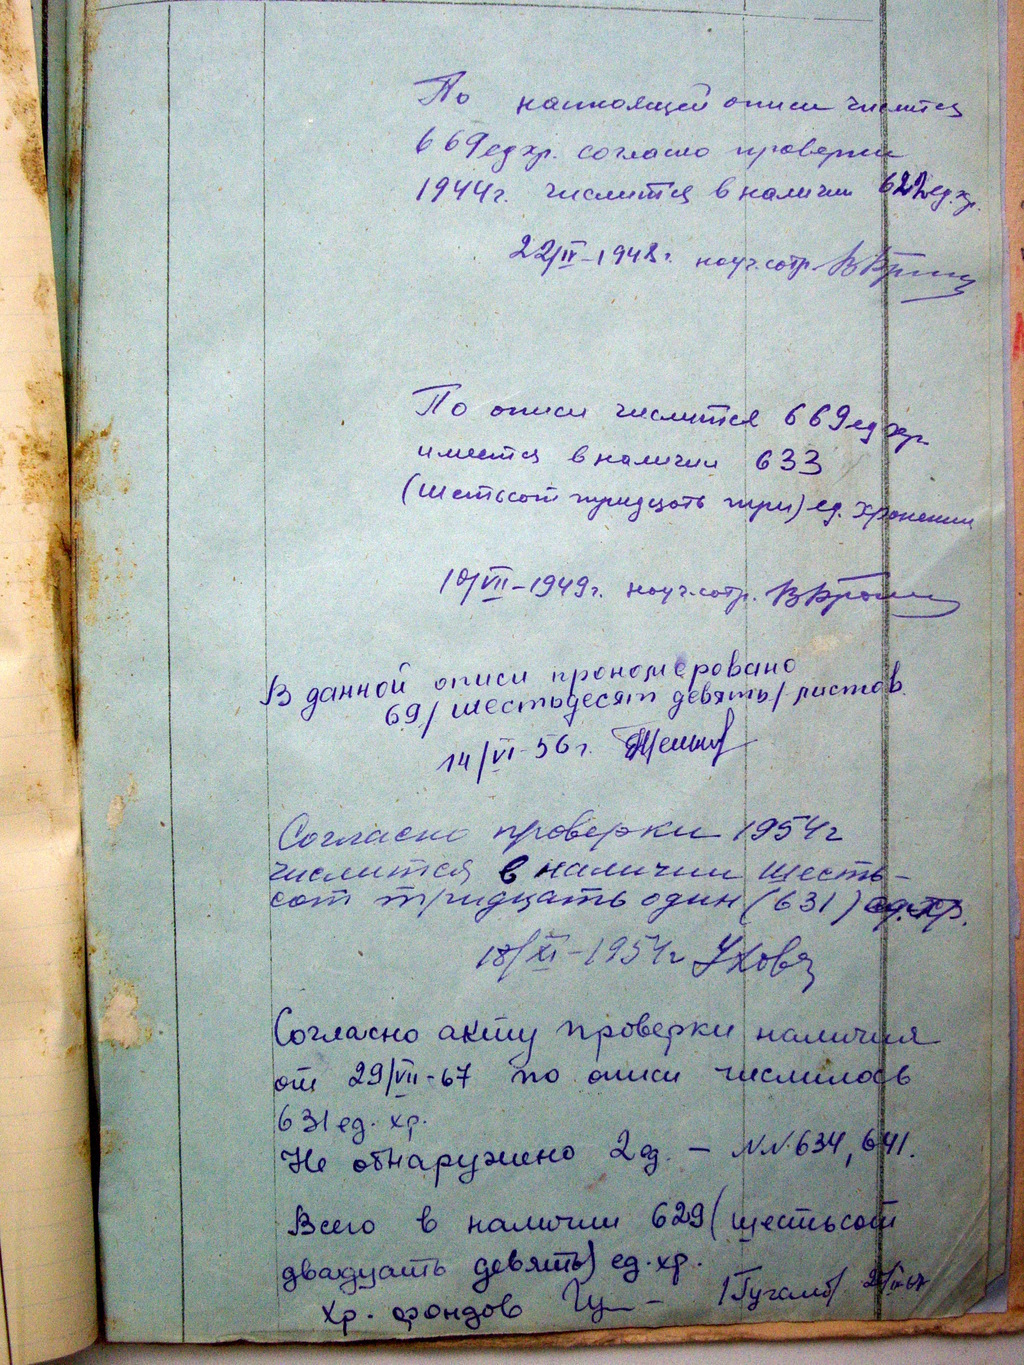 По настоящей описи числится
669 ед хр. согласно проверки
1944г. числится в наличии 622 ед. хр.
22/IV-1948г. науч. сотр.
По описи числится 669 ед хр
имеется в наличии 633
(шестьсот тридцать три) ед. хранения
10/VII-1949г. науч. сотр.
В данной описи прономеровано
69/шестьдесят девять/листов.
14/VI-56г.
Согласно проверки 1954г
числится в наличии шесть-
сот тридцать один (631) ед. хр.
18/XI-1954г Ухова
Согласно акту проверки наличия
от 29/VII-67 по описи числилось
631 ед. хр.
Не обнаружено 2 ед. - N.N. 634, 641.
Всего в наличии 629 (шестьсот
двадцать девять) ед. хр.
Хр. фондов